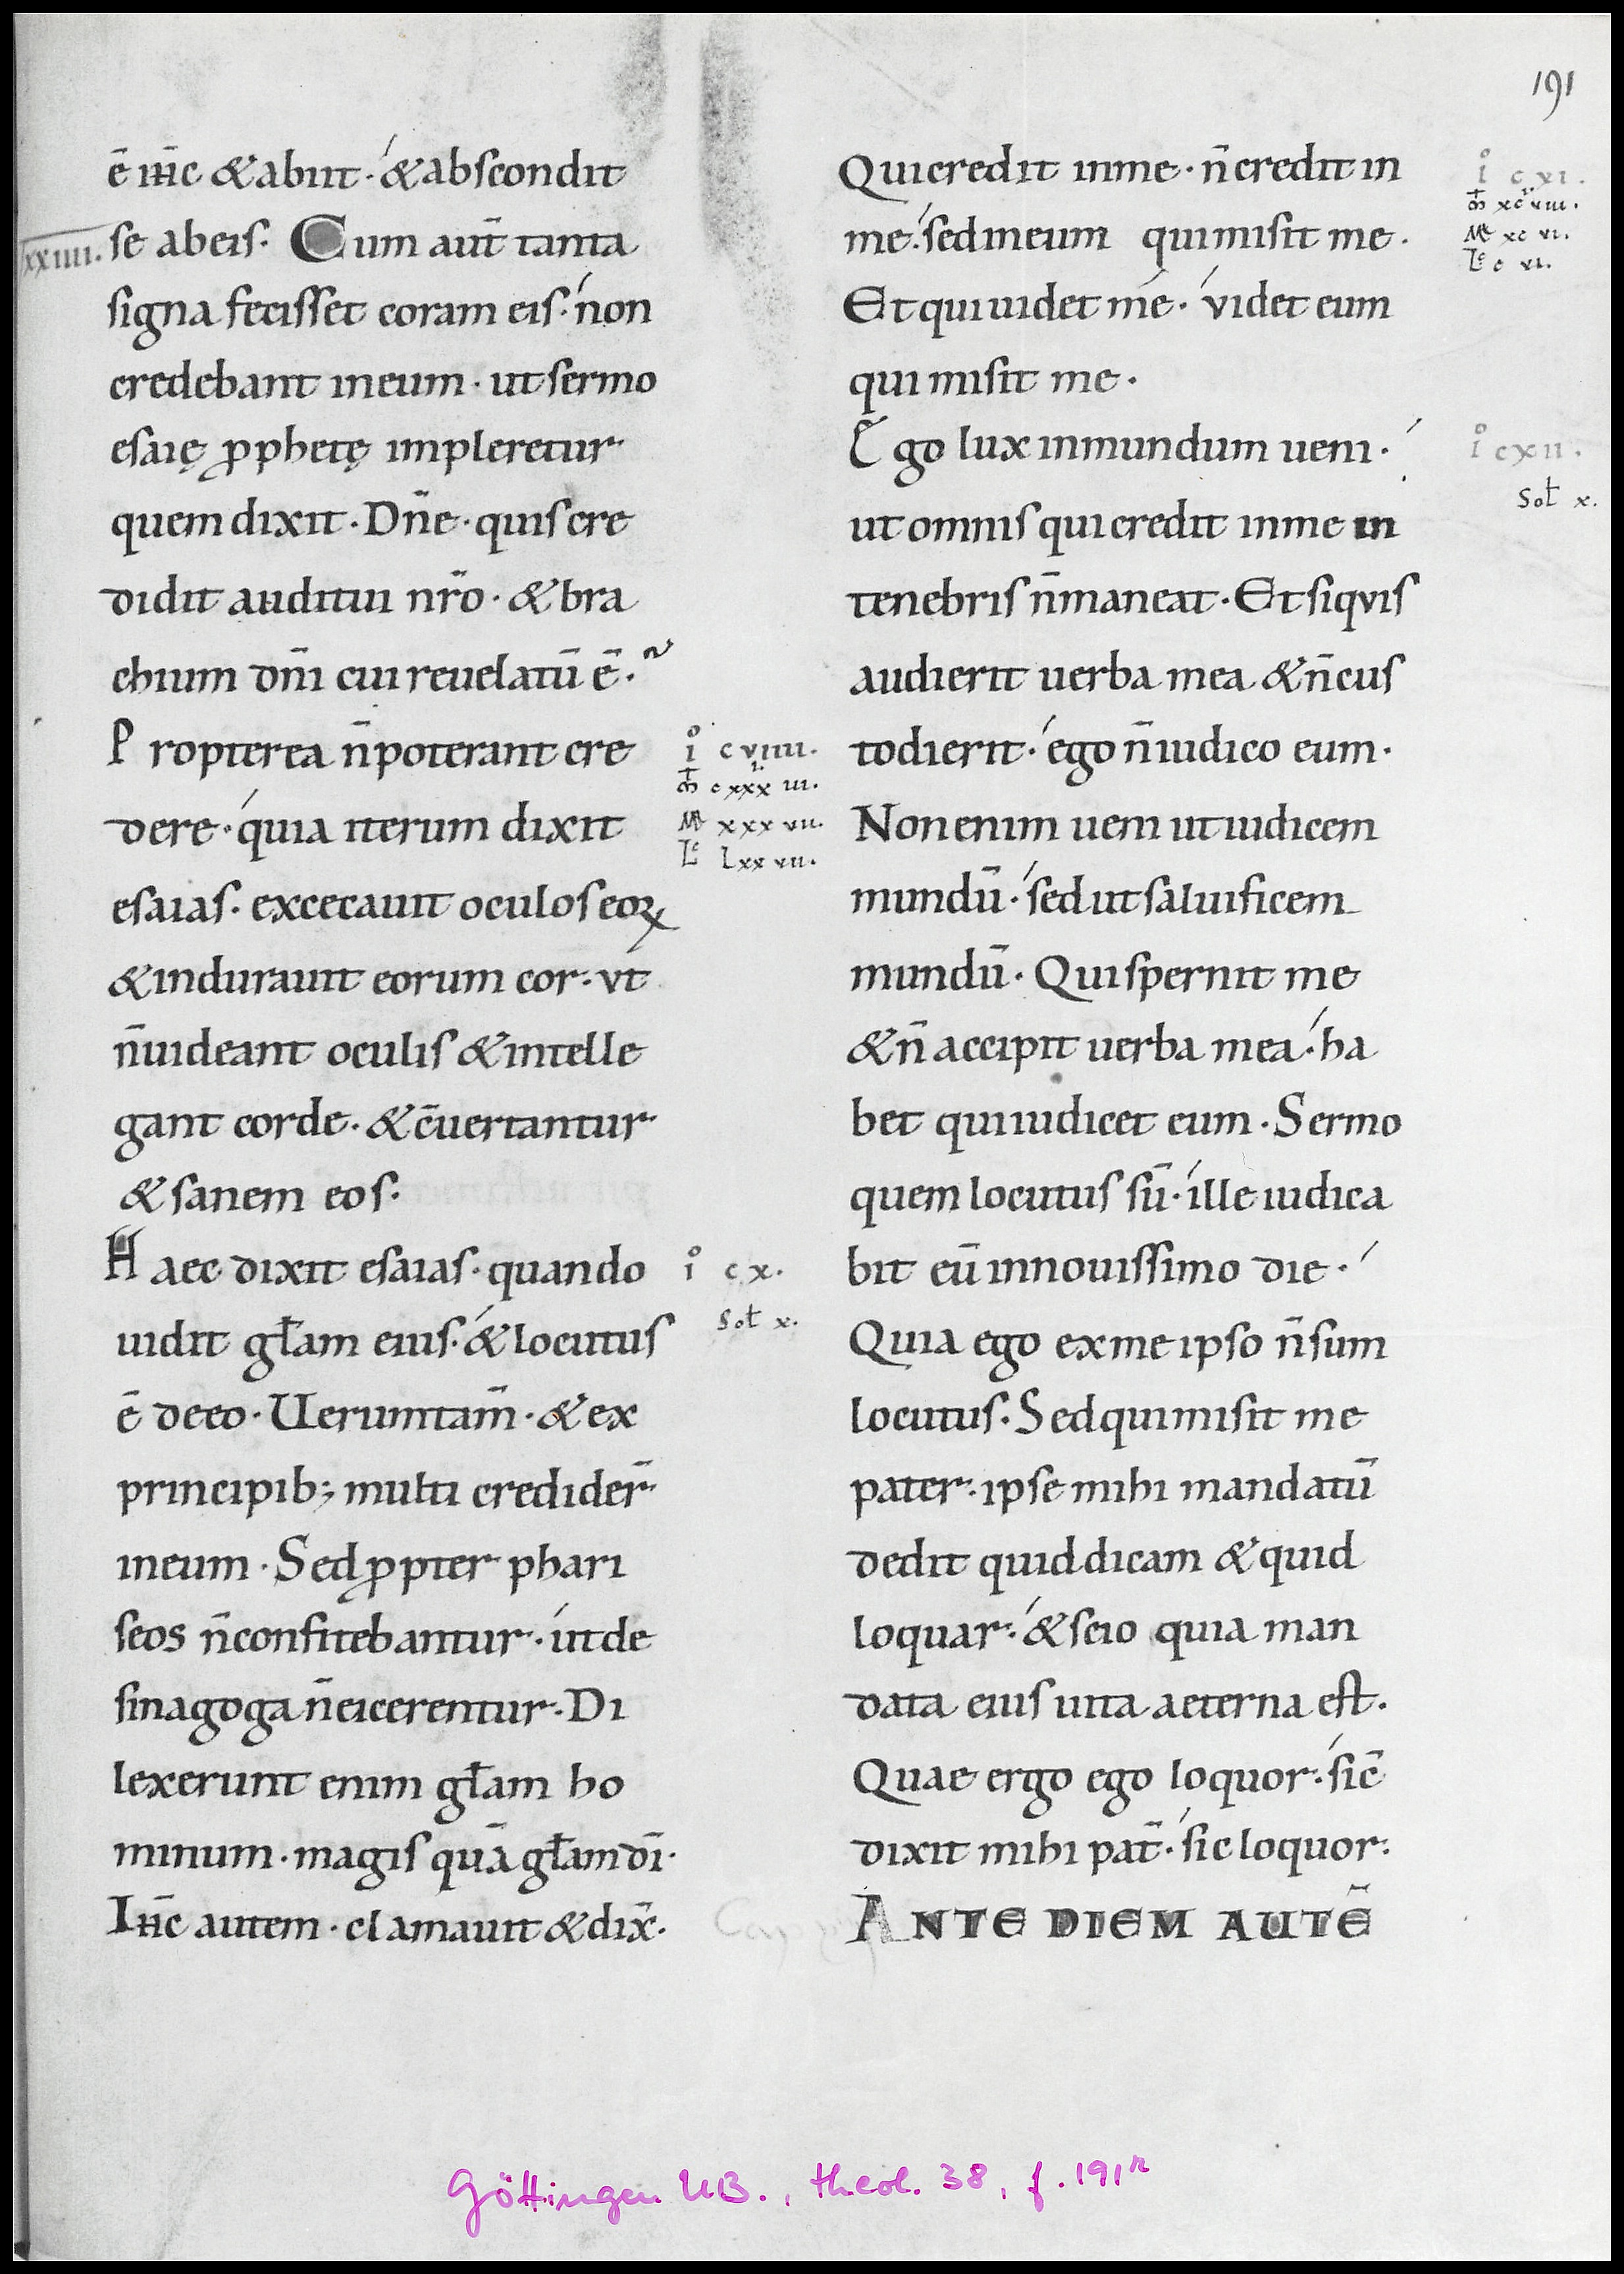 191
ē ih̄c & abiit · & abscondit
xxiiii. se ab eis. Cum aut̄ tanta
signa fecisset coram eis · non
credebant in eum · ut sermo
esaię ꝓphetę impleretur
quem dixit · Dn̄e · quis cre
didit auditui nr̄o · & bra
chium dn̄i cui reuelatū ē ·
Propterea n̄ poterant cre
dere · quia iterum dixit
esaias · excecauit oculos eoꝝ
& indurauit eorum cor · vt
n̄ uideant oculis & intelle
gant corde · & c̄uertantur
& sanem eos ·
Haec dixit esaias · quando
uidit gl̄am eius · & locutus
ē de eo · Ueruntam̄ · & ex
principib; multi credider̄
in eum · Sed ꝓpter phari
seos n̄ confitebantur · ut de
sinagoga n̄ eicerentur · Di
lexerunt enim gl̄am ho
minum · magis quā gl̄am dī ·
Ih̄c autem · clamauit & dix̄ ·
i° c viiii.
m̄ cxxxiii.
Mr xxxvii.
Lc lxxvii.
i° cx.
Sol x.
Qui credit in me · n̄ credit in
me · sed in eum qui misit me ·
Et qui uidet me · videt eum
qui misit me ·
Ego lux in mundum ueni ·
ut omnis qui credit in me in
tenebris n̄ maneat · Et si qvis
audierit uerba mea & n̄ cus
todierit · ego n̄ iudico eum ·
Non enim ueni ut iudicem
mundū · sed ut saluificem
mundū · Qui spernit me
& n̄ accipit uerba mea · ha
bet qui iudicet eum · Sermo
quem locutus sū · ille iudica
bit eū in nouissimo die ·
Quia ego ex me ipso n̄ sum
locutus · Sed qui misit me
pater · ipse mihi mandatū
dedit quid dicam & quid
loquar · & scio quia man
data eius uita aeterna est ·
Quae ergo ego loquor · sic̄
dixit mihi pat̄ · sic loquor ·
ANTE DIEM AUTĒ
i° cxi.
m̄ xcviii.
Mr xcvi.
Lc cvi.
i° cxii.
Sol x.
Göttingen UB., theol. 38, f. 191r